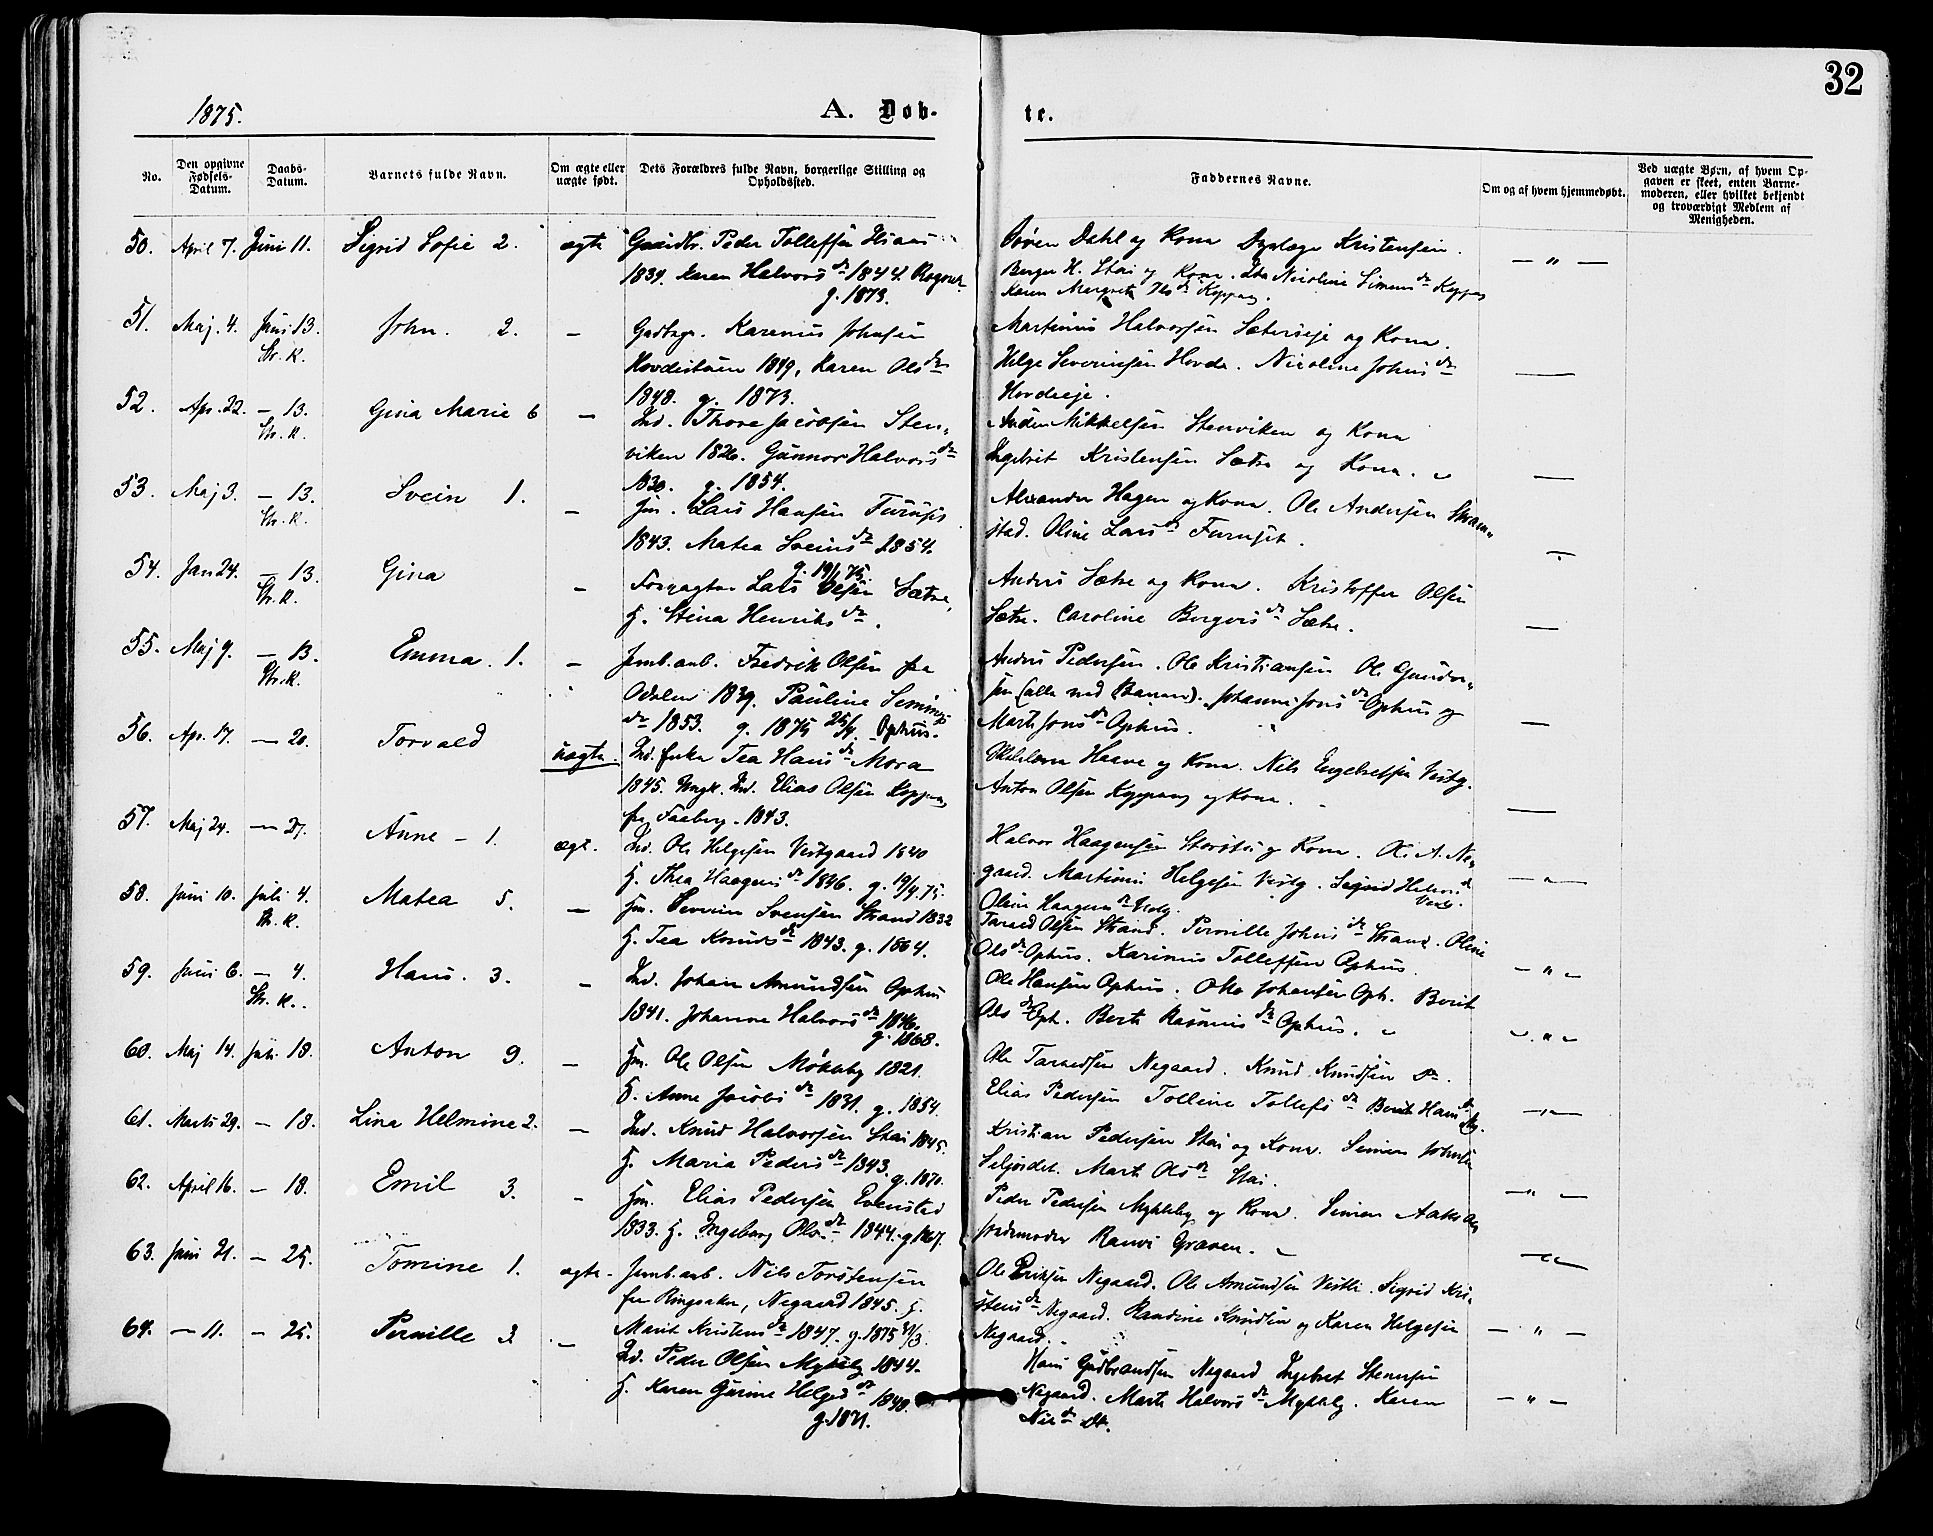 32
1875.
A. Døb-
te.
No.
Den opgivne Fødsels-Datum.
Daabs-Datum.
Barnets fulde Navn.
Om ægte eller uægte født.
Dets Forældres fulde Navn, borgerlige Stilling og Opholdssted.
Faddernes Navne.
Om og af hvem hjemmedøbt.
Ved uægte Børn, af hvem Opgaven er skeet, enten Barnemoderen, eller hvilket bekjendt og troværdigt Medlem af Menigheden.
50. April 7. Juni 11. Sigrid Sofie 2. ægte Peder Tolleffsen
1839. Karen Halvorsdr 1844.
g. 1873.
Søren Dahl og Kona Kristensen.
Berger H. Stai og Kona. Nicoline Simensdr Koppang
Karen Margrete Koppang.
51. Maj. 4. Juni 13. John. 2. — Gaardbgr. Karenus Johnsen
St. K.
1849, Karen Olsdr
1848. g. 1873.
Martinus Halvorsen Sætereje og Kona.
Helge Severinsen Hovda. Nicoline Johnsdr
Hovdeeje.
52. Apr. 22. — 13. Gina Marie 6 — Ind. Thore Jacobsen Sten-
St. K.
viken 1826. Gunnor Halvorsdr
1830. g. 1854.
Mikkelsen Stenviken og Kona
Ingebret Kristensen Sætre og Kona.
53. Maj 3. — 13. Svein 1. — Lars Hansen Furuset
St. K.
1843. Matea Sveinsdr 1854.
g. 19/1 75.
Alexander Hagen og Kona. Ole Andersen
stad. Oline Larsd Furuset.
54. Jan 24. — 13. Gina — Forpagter Lars Olsen Sætre,
St. K.
H. Stina Henriksdr.
Anders Sætre og Kona. Kristoffer Olsen
Sætre. Caroline Bergersdr Sætre.
55. Maj 9. — 13. Emma. 1. — Jernb.arb. Fredrik Olsen fra
St. K.
Odalen 1839. Pauline
dr 1853. g. 1875 Ophus.
Anders Pedersen. Ole Kristiansen Ole Gunder-
sen (alle ved Banen). Johanne Jonsdr Ophus og
Marte Jonsdr Ophus.
56. Apr. 17. — 20. Torvald uægte. Ind. Tea Hansdr Mora
1845. Ungk. Ind. Elias Olsen Koppang
fra Faaberg. 1843.
Haave og Kona. Nils Engebretsen Vestg.
Anton Olsen Koppang og Kona.
57. Maj 24. — 27. Anne – 1. ægt. Ind. Ole Helgesen Vestgaard 1840
H. Thea Haagensdr 1846. g. 19/4 75.
Halvor Haagensen og Kona. Ole A. Ne-
gaard. Martinus Helgesen Vestg. Sigrid
Oline Haagensdr Vestg.
58. Juni 10. Juli 4. Matea 5. — Gm. Svensen Strand 1832
St. K.
H. Tea Knudsdr 1843. g. 1864.
Taraed Olsen Strand. Pernille Johnsdr Strand. Oline
Olsdr Ophus. Karinus Tolleffsen Ophus.
59. Juni 6. — 4. Hans. 3. — Ind. Johan Amundsen Ophus
St. K.
1841. Johanne Halvorsdr 1846.
g. 1868.
Ole Hansen Ophus. Johansen Oph. Berit
Olsdr Oph. Berte Rasmusdr Ophus.
60. Maj 14. Juli 18. Anton 9. — Gm. Ole Olsen Møkleby 1821.
H. Anne Jacobsdr 1831. g. 1854.
Ole Taraedsen Negaard. Knud Knudsen
Elias Pedersen Tolline Tollefsdr Berit Hansdr
61. Marts 29. — 18. Lina Helmine 2. — Ind. Knud Halvorsen Stai 1845.
H. Maria Pedersdr 1843. g. 1870.
Kristian Pedersen Stai og Kona. Simen Johnsen
Marte Olsdr Stai.
62. April 16. — 18. Emil 3. — Gm. Elias Pedersen Evenstad
1833. H. Ingeborg Olsdr 1844. g. 1867.
Peder Pedersen Myklebg og Kona. Simen
Ranvei Graven.
63. Juni 21. — 25. Tomine 1. ægte. Jernb.arb. Nils Torstensen
fra Ringsaker, Negaard 1845. H.
Marit Kristensdr 1847. g. 1875 /3.
Ole Eriksen Negaard. Ole Amundsen Vestli. Sigrid Kri-
stensdr Negaard. Randine Knudsen og Karen Helgesen
Negaard.
64. — 11. — 25. Pernille 3. — Ind. Peder Olsen Myklebg 1844.
H. Karen Gurine Helgesdr 1848.
g. 1871.
Hans Gudbrandsen Negaard Ingebret Stensen
Negaard. Marte Halvorsdr Myklebg. Karen